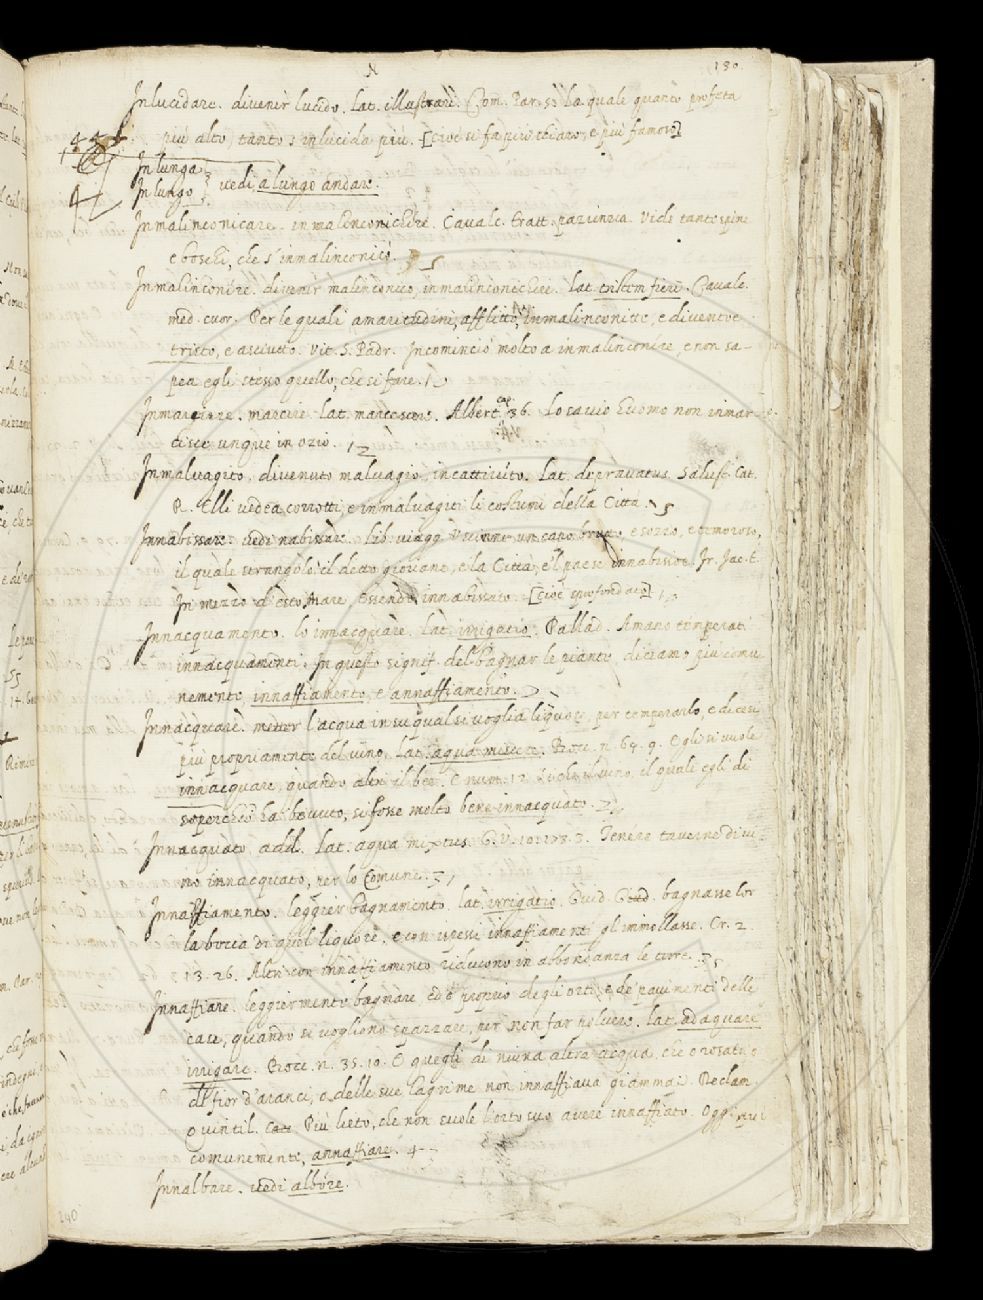 N 130.
Inlucidare. divenir lucido. Lat. illustrari. Com. Par. 5. La quale quanto profeta
più alto, tanto s'inlucida più. [cioè si fa più chiaro, e più famoso]
Inlunga
Inlungo vedi, a lungo andare.
Inmalinconicare. inmalinconichire. Cavalc. tratt. pazienzia. Vide tante spine
e boschi, che s'inmalinconicò. 5
Inmalinconire. divenir malinconico, inmalinconichire. Lat. tristem fieri. Cavalc.
med. cuor. Per le quali amaritudini, afflitto, inmalinconitte, e diventoe
tristo, e asciutto. Vit. S. Padr. Incominciò molto a inmalinconire, e non sa-
pea egli stesso quello, che si fare.
Inmarcire. marcire. Lat. marcescere. Albert. cap. 36. Lo savio huomo non inmar-
cisce unque in ozio. 12
Inmalvagito. divenuto malvagio, incattivito. Lat. depravatus. Salust. Cat.
R. Elli vedea corrotti, e inmalvagiti li costumi della Città. 5
Innabissare. vedi nabissare. Lib. viagg. V'uscinne un capo bruno, e sozzo, e temoroso,
il quale strangolò il detto giovane, e la Città, e'l paese innabissoe. Fr. Jac. t.
In mezzo d'esto Mare Essendo innabissato. [cioè sprofondato]
Innacquamento. lo innacquare. Lat. irrigatio. Pallad. Amano temperati
innacquamenti. In questo signif. del bagnar le piante, diciamo più comu-
nemente, innaffiamento, e annaffiamento.
Innacquare. metter l'acqua in su qual si voglia liquore, per temperarlo, e dicesi
più propriamente del vino. Lat. aqua miscere. Bocc. n. 64. 9. Egli si vuole
innacquare, quando altri il bee. E num. 12. il vino, il quale egli di
soperchio ha bevuto, si fosse molto bene innacquato.
Innacquato. add. Lat. aqua mixtus. G. V. 10. 193. 3. Tenere taverne di vi-
no innacquato, per lo Comune.
Innaffiamento. leggier bagnamento. Lat. irrigatio. Guid. G. bagnasse lor
la bocca di quel liquore, e con ispessi innaffiamenti gl'inmollasse. Cr. 2.
13. 26. Altri con innaffiamento riducono in abbondanza le
Innaffiare. leggiermente bagnare, ed è proprio degli orti, e de' pavimenti delle
case, quando si vogliono spazzare, per non far polvere. Lat. adaquare
irrigare. Bocc. n. 35. 10. E quegli di niuna altra acqua, che o rosata, o
di fior d'aranci, o delle sue lagrime non innaffiava giammai. Declam.
Quintil. Più lieto, che non suole l'orto suo avere innaffiato. Oggi più
comunemente, annaffiare. 4
Innalbare. vedi albore.
240